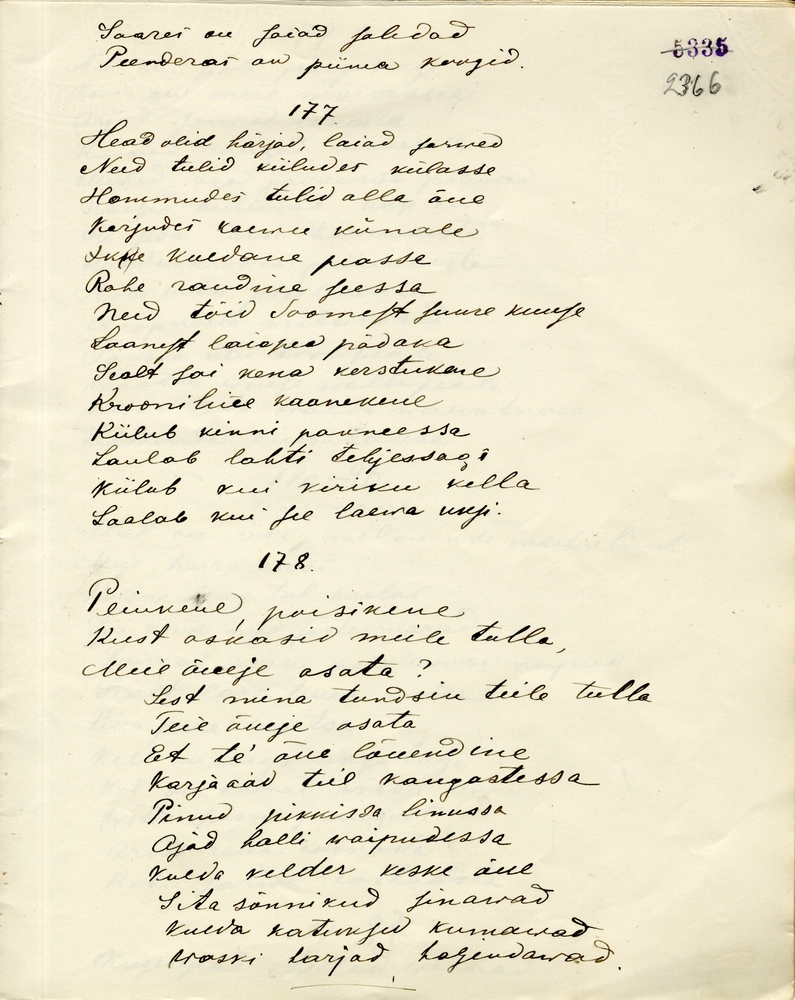 Saares on saiad saledad
Peenderas on piima koogid.
5335
2366
177.
Head olid härjad, laiad sarwed
Need tulid kiiludes külasse
Hommudes tulid alla õue
Karjudes kaewu künale
kuldane peasse
Rohe raudine seessa
Need tõid Soomest suure kuuse
Saarest laiapea pädaka
Sealt sai kena kerstukene
Kroonilise kaanekene
Kiilub kinni panneessa
Laulab lahti tehjessagi
Kiilub kui kiriku kella
Laalab kui see laewa uksi.
178.
Peiukene, poisikene
Kust oskasid meile tulla,
Meie õueje osata?
Sest mina tundsin teile tulla
Teie õueje osata
Et te' õue lõuendine
Karjaaid teil kangastessa
Pinud pikkissa linussa
Ajad halli waipudessa
Kulda kelder keske õue
Sita sõnnikud sinawad
Kulda katuksed kumawad
Waski harjad haljendawad.